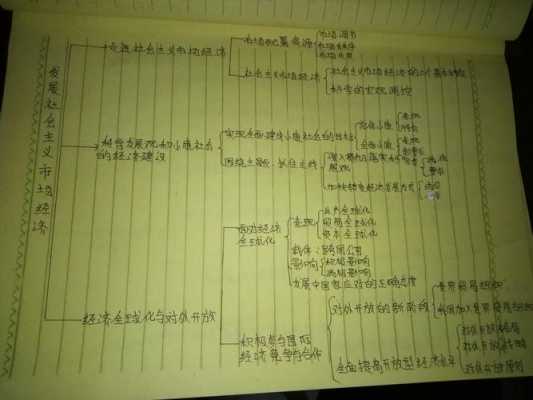 发展社会主义市场经济
发展社会主义市场经济
市场配置资源
市场调节
市场秩序
社会主义市场经济
社会主义市场经济的
科学的宏观调控
科学发展观和小康社会
的经济建设
实现全面建成小康社会的目标
总体小康
全面小康
表现
围绕主题、抓住主线
加快转变经济发展方式
经济全球化与对外开放
面对经济
全球化
表现
生产全球化
贸易全球化
资本全球化
载体：跨国公司
影响
积极影响
消极影响
发展中国家应对的正确态度
积极参与国际
经济竞争与合作
对外开放的新阶段
世界贸易组织
我国加入世界贸易组织
全面提高开放型经济水平
对外开放格局
对外开放战略
对外开放原则